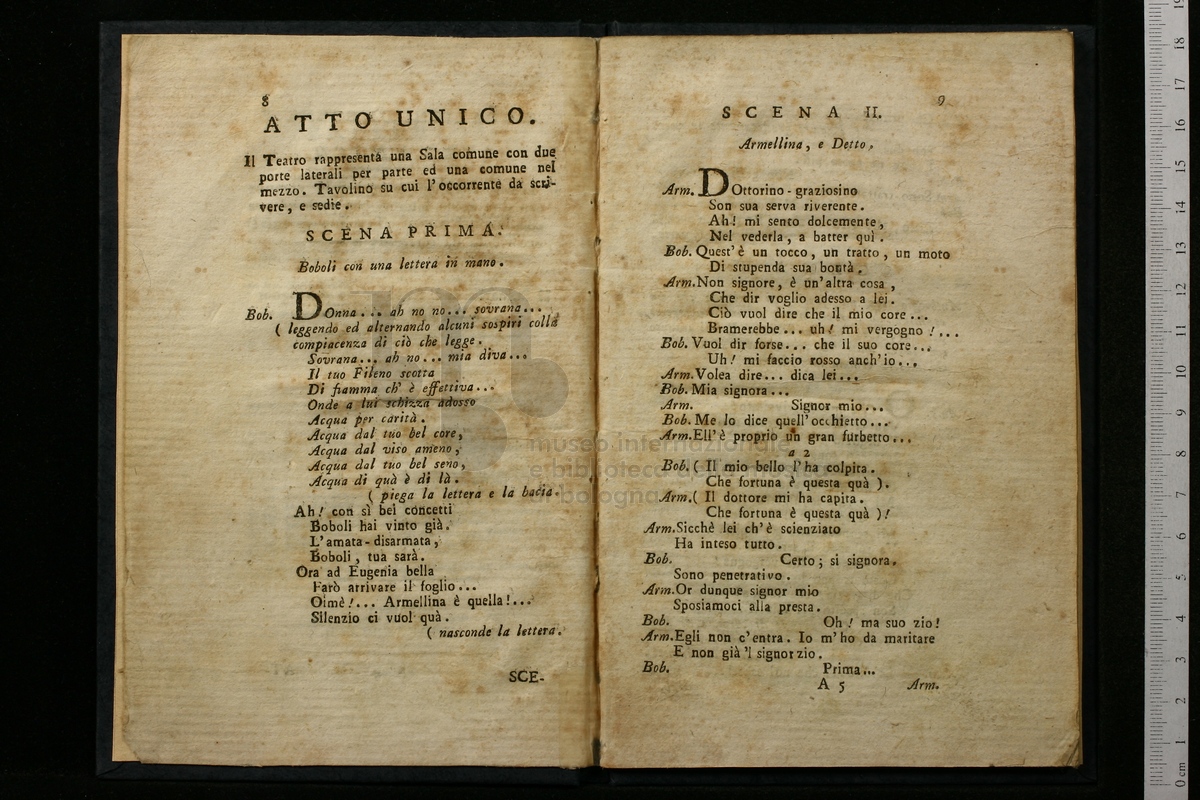 8
ATTO UNICO.
Il Teatro rappresenta una Sala comune con due
porte laterali per parte ed una comune nel
mezzo. Tavolino su cui l'occorrente da scri-
vere, e sedie.
SCENA PRIMA.
Boboli con una lettera in mano.
Bob. DOnna... ah no no... sovrana...
( leggendo ed alternando alcuni sospiri colla
compiacenza di ciò che legge.
Sovrana... ah no... mia diva...
Il tuo Fileno scotta
Di fiamma ch' è effettiva...
Onde a lui schizza adosso
Acqua per carità.
Acqua dal tuo bel core,
Acqua dal viso ameno,
Acqua dal tuo bel seno,
Acqua di quà è di là.
( piega la lettera e la bacia.
Ah! con sì bei concetti
Boboli hai vinto già.
L'amata-disarmata,
Boboli, tua sarà.
Ora ad Eugenia bella
Farò arrivare il foglio...
Oimè!... Armellina è quella!...
Silenzio ci vuol quà.
( nasconde la lettera.
SCE-
9
SCENA II.
Armellina, e Detto.
Arm. DOttorino-graziosino
Son sua serva riverente.
Ah! mi sento dolcemente,
Nel vederla, a batter quì.
Bob. Quest'è un tocco, un tratto, un moto
Di stupenda sua bontà.
Arm. Non signore, è un'altra cosa,
Che dir voglio adesso a lei.
Ciò vuol dire che il mio core...
Bramerebbe... uh! mi vergogno!...
Bob. Vuol dir forse... che il suo core...
Uh! mi faccio rosso anch'io...
Arm. Volea dire... dica lei...
Bob. Mia signora...
Arm. Signor mio...
Bob. Me lo dice quell'occhietto...
Arm. Ell'è proprio un gran furbetto...
a 2
Bob. ( Il mio bello l'ha colpita.
Che fortuna è questa quà ).
Arm. ( Il dottore mi ha capita.
Che fortuna è questa quà )!
Arm. Sicchè lei ch'è scienziato
Ha inteso tutto.
Bob. Certo; si signora.
Sono penetrativo.
Arm. Or dunque signor mio
Sposiamoci alla presta.
Bob. Oh! ma suo zio!
Arm. Egli non c'entra. Io m'ho da maritare
E non già 'l signor zio.
Bob. Prima...
A 5 Arm.
museo internazionale
e biblioteca
bologna
0 cm 1 2 3 4 5 6 7 8 9 10 11 12 13 14 15 16 17 18 19